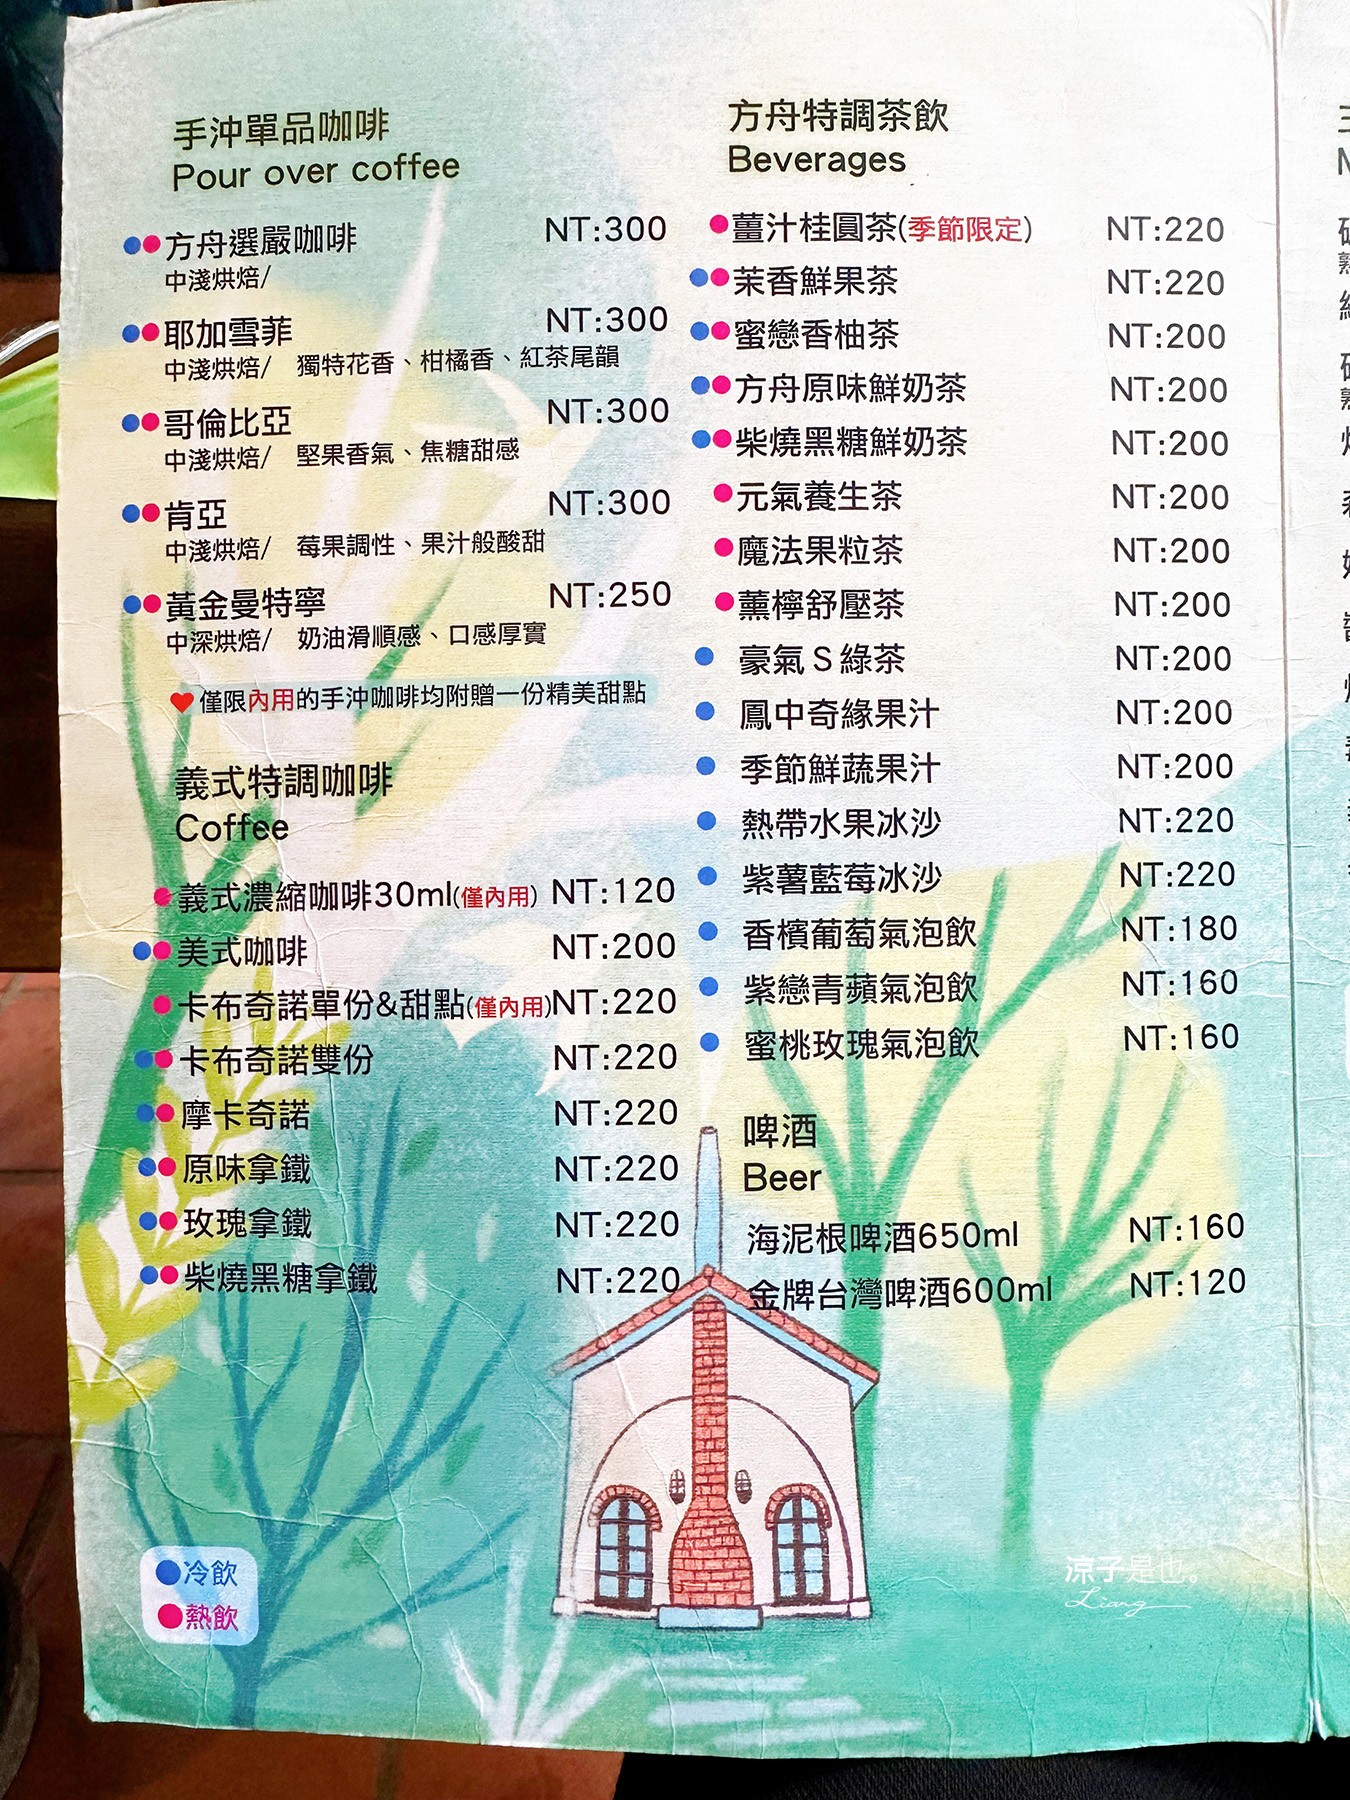 手沖單品咖啡
Pour over coffee
方舟選嚴咖啡 NT:300
中淺烘焙/
耶加雪菲 NT:300
中淺烘焙/ 獨特花香、柑橘香、紅茶尾韻
哥倫比亞 NT:300
中淺烘焙/ 堅果香氣、焦糖甜感
肯亞 NT:300
中淺烘焙/ 莓果調性、果汁般酸甜
黃金曼特寧 NT:250
中深烘焙/ 奶油滑順感、口感厚實
僅限內用的手沖咖啡均附贈一份精美甜點
義式特調咖啡
Coffee
義式濃縮咖啡30ml(僅內用) NT:120
美式咖啡 NT:200
卡布奇諾單份&甜點(僅內用) NT:220
卡布奇諾雙份 NT:220
摩卡奇諾 NT:220
原味拿鐵 NT:220
玫瑰拿鐵 NT:220
柴燒黑糖拿鐵 NT:220
冷飲
熱飲
方舟特調茶飲
Beverages
薑汁桂圓茶(季節限定) NT:220
茉香鮮果茶 NT:220
蜜戀香柚茶 NT:200
方舟原味鮮奶茶 NT:200
柴燒黑糖鮮奶茶 NT:200
元氣養生茶 NT:200
魔法果粒茶 NT:200
薰檸舒壓茶 NT:200
豪氣S綠茶 NT:200
鳳中奇緣果汁 NT:200
季節鮮蔬果汁 NT:200
熱帶水果冰沙 NT:220
紫薯藍莓冰沙 NT:220
香檳葡萄氣泡飲 NT:180
紫戀青蘋氣泡飲 NT:160
蜜桃玫瑰氣泡飲 NT:160
啤酒
Beer
海泥根啤酒650ml NT:160
金牌台灣啤酒600ml NT:120
涼子是也。
Liang